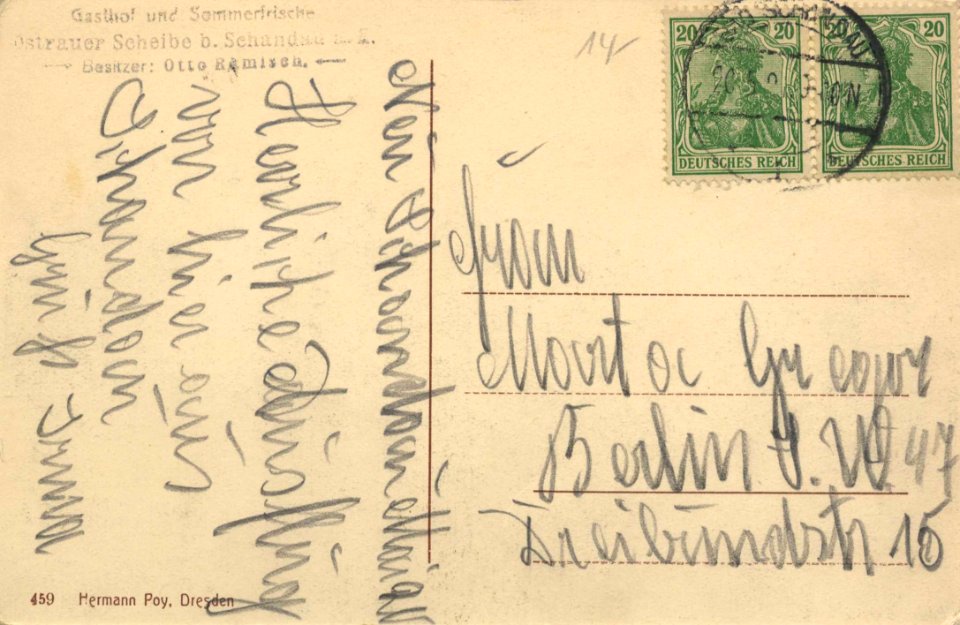 Gasthof und Sommerfrische
Ostrauer Scheibe b. Schandau a. E.
Besitzer: Otto Rämisch.
14
20 20
DEUTSCHES REICH
20 20
DEUTSCHES REICH
SCHANDAU
Herrliche
von hier aus
Schandau
Gruß
Frau
Marta Gregor
Berlin S.W 47
Dreibundstr 15
459 Hermann Poy, Dresden